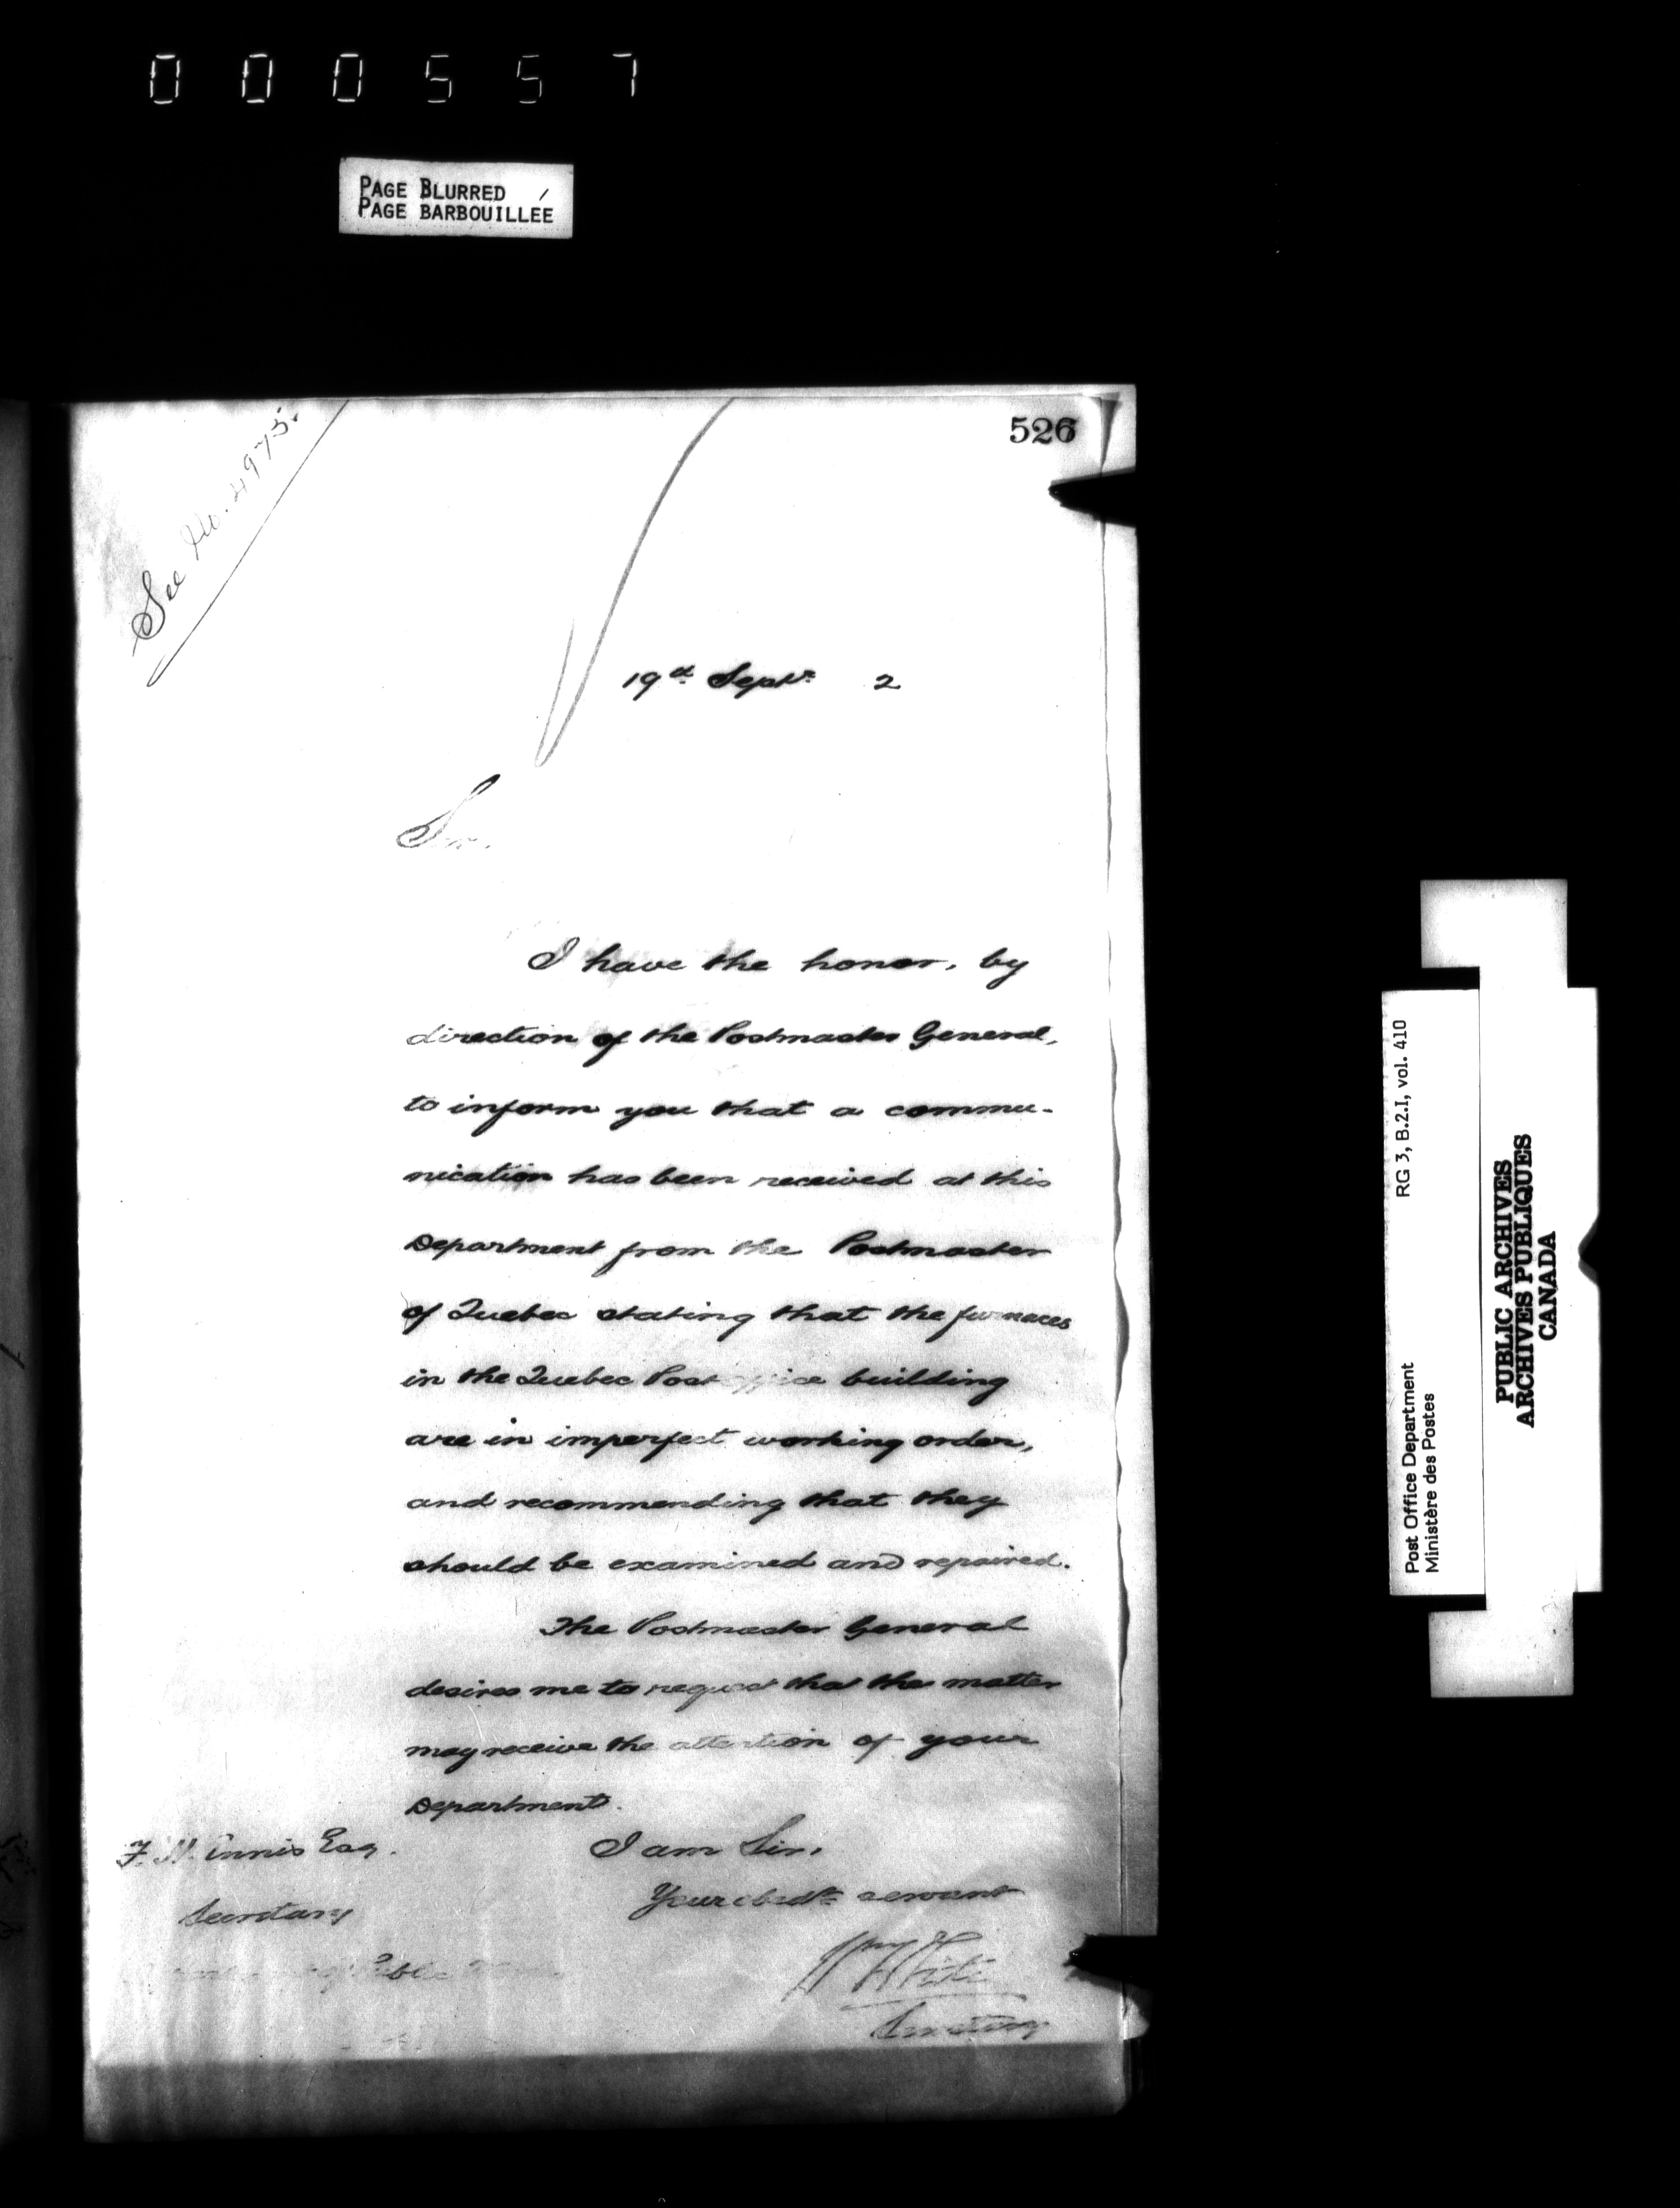 000557
PAGE BLURRED
PAGE BARBOUILLÉE
526
See No. 4975.
19th Septr. 2
Sir.
I have the honor, by
direction of the Postmaster General,
to inform you that a commu-
nication has been received at this
Department from the Postmaster
of Quebec stating that the furnaces
in the Quebec Post office building
are in imperfect working order,
and recommending that they
should be examined and repaired.
The Postmaster General
desires me to request that the matter
may receive the attention of your
Department.
I am Sir,
Your obedt. servant
Wm White
Secretary
F. H. Ennis Esq.
Secretary
Public
RG 3, B.2.I, vol. 410
Post Office Department
Ministère des Postes
PUBLIC ARCHIVES
ARCHIVES PUBLIQUES
CANADA